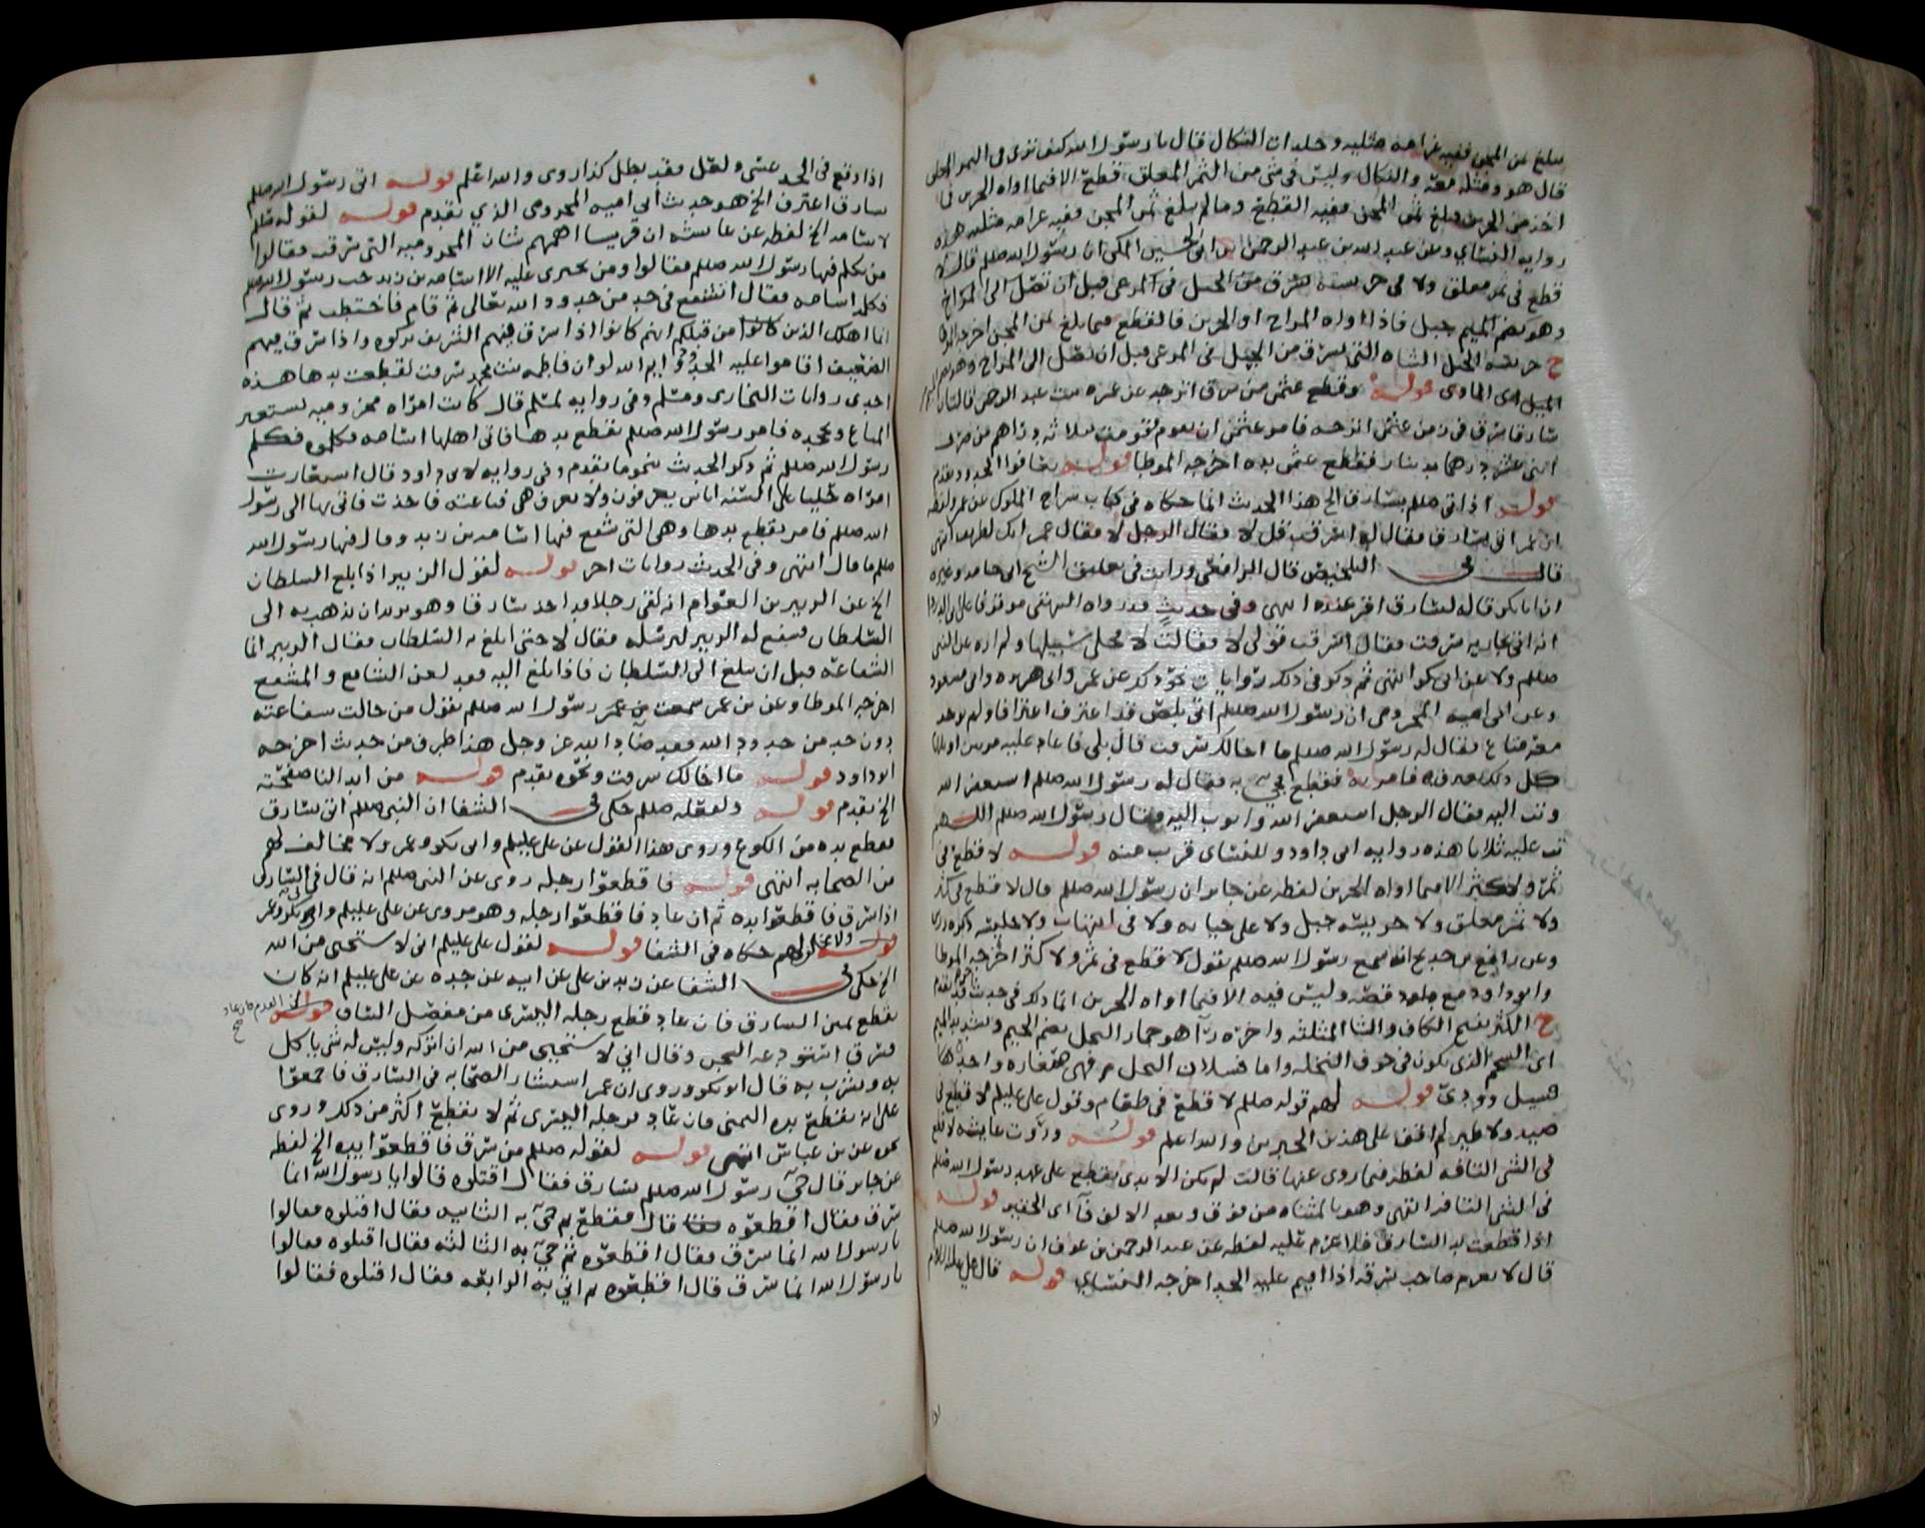 يبلغ ثمن المجن ففيه غرامة مثليه وجلدات النكال فقال يا رسول الله كيف ترى في الثمر المعلق
قال هو ومثله معه والنكال وليس في شي من الثمر المعلق قطع الا فيما اواه الجرين فما
اخذ من الجرين فبلغ ثمن المجن ففيه القطع وما لم يبلغ ثمن المجن ففيه غرامه مثليه هذه
روايه النساي وعن عبد الله بن عبد الرحمن بن ابي الحسين المكي ان رسول الله صللم قال لا
قطع في ثمر معلق ولا في حريسة تسرق من الجبل في المرعى قبل ان تصل الى المراح
وهو بضم الميم جبل فاذا اواه المراح او الجرين فالقطع فيما بلغ ثمن المجن اخرجه الموطا
ح حريسة الجبل الشاه التي تسرق من الجبل في المرعى قبل ان تصل الى المراح وهو بضم
الميم اي الماوى قوله وقطع عثمن من سرق اترجه عن عمره بنت عبد الرحمن قالت ان
سارقا سرق في زمن عثمن اترجه فامر عثمن ان تقوم فقومت بثلاثه دراهم من صرف
اثنى عشر درهما بدينار فقطع عثمن يده اخرجه الموطا قوله تعافوا الحدود تقدم
قوله اذا اتى صللم بسارق الخ هذا الحديث انما حكاه في كتاب سراج الملوك عن عمر ولفظه
ان عمر اتى بسارق فقال له اسرقت قل لا فقال الرجل لا فقال عمر انك لظريف انتهى
قال في التلخيص قال الرافعي ورايت في تعليق الشيخ ابي حامد وغيره
ان ابا بكر قاله لسارق اقر عنده انتهى وفي حديث قد رواه البيهقي موقوفا على ابي الدردا
انه اتى بجاريه سرقت فقال اسرقت قولي لا فقالت لا فخلى سبيلها ولم اره عن النبي
صللم ولا عن ابي بكر انتهى ثم ذكر في ذلك روايات نحو ذلك عن عمر وابي هريره وابي مسعود
وعن ابي اميه المخزومي ان رسول الله صللم اتي بلص قد اعترف اعترافا ولم يوجد
معه متاع فقال له رسول الله صللم ما اخالك سرقت قال بلى فاعاد عليه مرتين او ثلاثا
كل ذلك يعترف فامر به فقطع وجي به فقال له رسول الله صللم استغفر الله
وتب اليه فقال الرجل استغفر الله واتوب اليه فقال رسول الله صللم اللهم
تب عليه ثلاثا هذه روايه ابي داود وللنساي قريب منه قوله لا قطع في
ثمر ولا كثر الا فيما اواه الجرين لفظه عن جابر ان رسول الله صللم قال لا قطع في كثر
ولا ثمر معلق ولا حريسة جبل ولا على خيانه ولا في انتهاب ولا خليسه ذكره رزين
وعن رافع بن خديج انه سمع رسول الله صللم يقول لا قطع في ثمر ولا كثر اخرجه الموطا
وابو داود مع قصه وليس فيه الا فيما اواه الجرين انما ذلك في حديث قد تقدم
ح الكثر بفتح الكاف والثا المثلثه واخره رآ هو جمار النخل بضم الجيم وتشديد الميم
اي الشحم الذي يكون في جوف النخله واما فسلان النخل فهي صغاره واحدها
فسيل وودي قوله لهم قوله صللم لا قطع في طعام وقول علي عليلم لا قطع في
صيد ولا طير لم اقف على هذين الخبرين والله اعلم قوله وروت عايشه لا قطع
في الشي التافه لفظه فيما روى عنها قالت لم يكن الايدي تقطع على عهد رسول الله صللم
في الشي التافه انتهى وهو بالمثناه من فوق وبعد الالف فآ اي الحقير قوله
اذا قطعت يد السارق فلا غرم عليه لفظه عن عبد الرحمن بن عوف ان رسول الله صللم
قال لا يغرم صاحب سرقه اذا اقيم عليه الحد اخرجه النساي قوله قال علي عليه السلام
اذا وقع في الحد عسى ولعل فقد بطل كذا روى والله اعلم قوله اتى رسول الله صللم
سارق اعترف الخ هو حديث ابي اميه المخزومي الذي تقدم قوله لقوله صللم
لاسامه الخ لفظه عن عايشه ان قريشا اهمهم شان المخزوميه التي سرقت فقالوا
من يكلم فيها رسول الله صللم فقالوا ومن يجتري عليه الا اسامه بن زيد حب رسول الله صللم
فكلمه اسامه فقال اتشفع في حد من حدود الله تعالى ثم قام فاختطب ثم قال
انما اهلك الذين كانوا من قبلكم انهم كانوا اذا سرق فيهم الشريف تركوه واذا سرق فيهم
الضعيف اقاموا عليه الحد وايم الله لو ان فاطمه بنت محمد سرقت لقطعت يدها هذه
احدى روايات البخاري ومسلم وفي روايه لمسلم قال كانت امراه مخزوميه تستعير
المتاع وتجحده فامر رسول الله صللم بقطع يدها فاتى اهلها اسامه فكلموه فكلم
رسول الله صللم ثم ذكر الحديث بنحو ما تقدم وفي روايه لابي داود قال استعارت
امراه حليا على السنه اناس يعرفون ولا تعرف هي فباعته فاخذت فاتي بها الى رسول
الله صللم فامر بقطع يدها وهي التي شفع فيها اسامه بن زيد وقال فيها رسول الله
صللم ما قال انتهى وفي الحديث روايات اخر قوله لقول الزبير اذا بلغ السلطان
الخ عن الزبير بن العوام انه لقى رجلا قد اخذ سارقا وهو يريد ان يذهب به الى
السلطان فشفع له الزبير ليرسله فقال لا حتى ابلغ به السلطان فقال الزبير انما
الشفاعه قبل ان يبلغ الى السلطان فاذا بلغ اليه فقد لعن الشافع والمشفع
اخرجه الموطا وعن بن عمر سمعت رسول الله صللم يقول من حالت شفاعته
دون حد من حدود الله فقد ضاد الله عز وجل هذا طرف من حديث اخرجه
ابو داود قوله ما اخالك سرقت ونحوه تقدم قوله من ابدا لنا صفحته
الخ تقدم قوله ولفعله صللم حكى في الشفا ان النبي صللم اتي بسارق
فقطع يده من الكوع وروى هذا القول عن علي عليلم وابي بكر وعمر ولا مخالف لهم
من الصحابه انتهى قوله فاقطعوا رجله روى عن النبي صللم انه قال في السارق
اذا سرق فاقطعوا يده ثم ان عاد فاقطعوا رجله وهو مروي عن علي عليلم وابي بكر وعمر
قوله ولا مخالف لهم حكاه في الشفا قوله لقول علي عليلم اني لاستحيي من الله
الخ حكى في الشفا عن زيد بن علي عن ابيه عن جده عن علي عليلم انه كان
يقطع يمين السارق فان عاد قطع رجله اليسرى من مفصل الساق قوله
فسرق استودعه السجن وقال اني لاستحيي من الله ان اتركه وليس له شي ياكل
به ويشرب به قال ابو بكر وروى ان عمر استشار الصحابه في السارق فاجمعوا
على انه تقطع يده اليمنى فان عاد فرجله اليسرى ثم لا يقطع اكثر من ذلك وروى
نحوه عن بن عباس انتهى قوله لقوله صللم من سرق فاقطعوا يده الخ لفظه
عن جابر قال جي رسول الله صللم بسارق فقال اقتلوه قالوا يا رسول الله انما
سرق فقال اقطعوه قال فقطع ثم جي به الثانيه فقال اقتلوه فقالوا
يا رسول الله انما سرق فقال اقطعوه ثم جي به الثالثه فقال اقتلوه فقالوا
يا رسول الله انما سرق قال اقطعوه ثم اتي به الرابعه فقال اقتلوه فقالوا